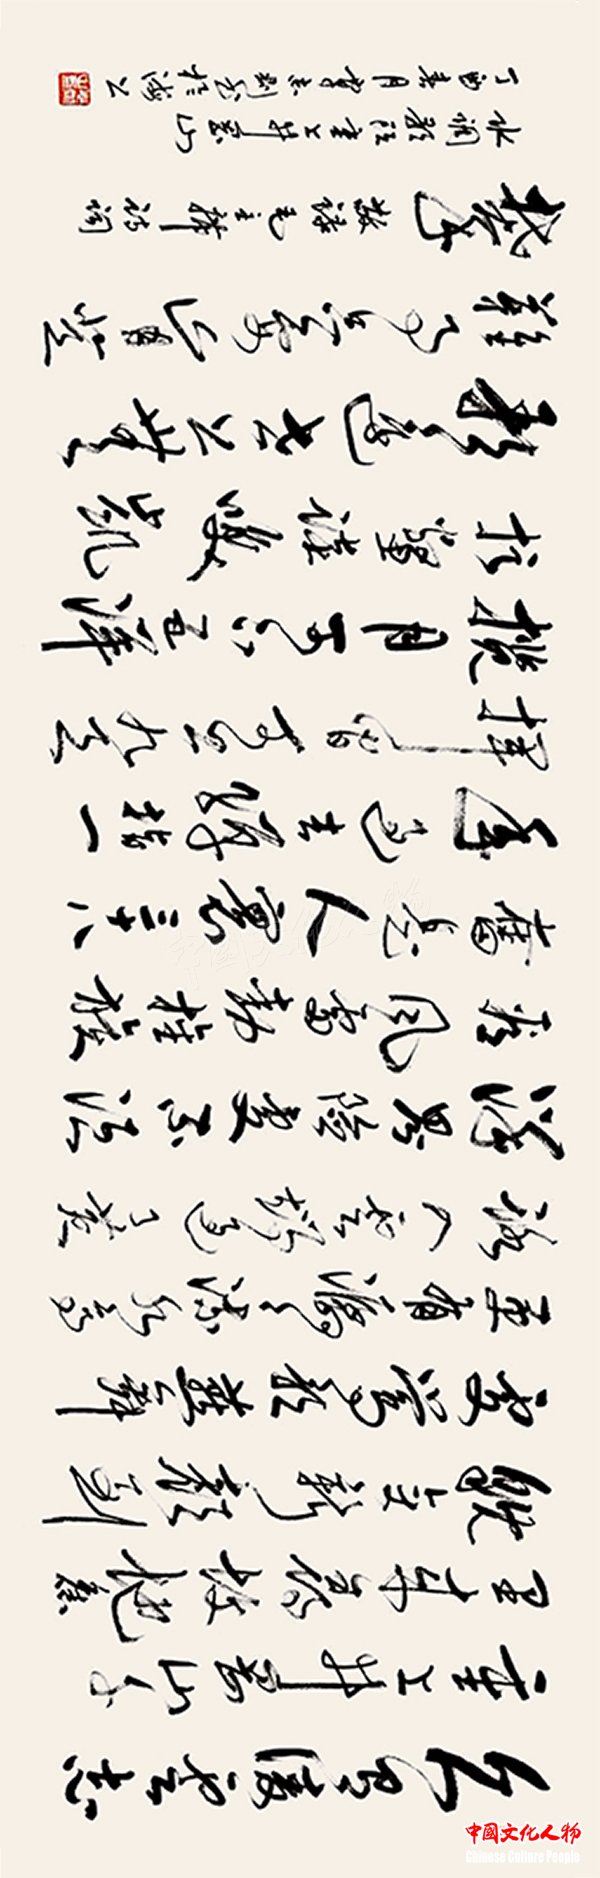 久有凌云志
重上井岡山千
里来尋故地舊
貌变新颜到
处鶯歌燕舞
更有潺潺流水高
路入云端过了黄
洋界险处不须
看风雷動旌旗
奮是人寰三十八
年过去弹指一
挥间可上九天
揽月可下五洋
捉鳖谈笑凯
歌还世上無
難事只要肯登
攀
敬录毛主席诗词
水调歌头重上井岡山
丁酉春月
中國文化人物
Chinese Culture People